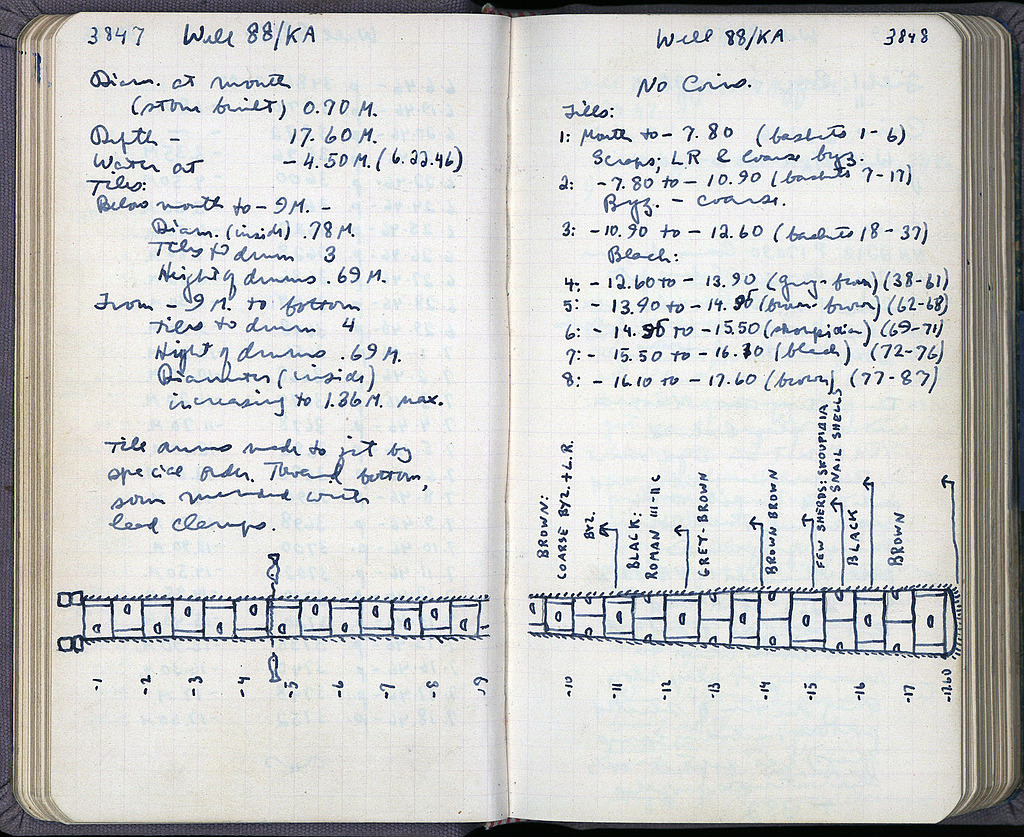 3847 Well 88/KA
Diam. at mouth
(stone built) 0.70 M.
Depth - -17.60 M.
Water at - 4.50 M. (6.22.46)
Tiles:
Below mouth to - 9 M. -
Diam. (inside) .78 M.
Tiles to drum 3
Height of drums .69 M.
From - 9 M. to bottom
tiles to drum 4
Hight of drums .69 M.
Diameter (inside)
increasing to 1.36 M. max.
Tile drums made to fit by
special order. Toward bottom,
some mended with
lead clamps.
-1 -2 -3 -4 -5 -6 -7 -8 -9
Well 88/KA 3848
No Coins.
Fills:
1: Mouth to - 7.80 (baskets 1-6)
Scraps; LR & coarse byz.
2: - 7.80 to - 10.90 (baskets 7-17)
Byz. - coarse.
3: - 10.90 to - 12.60 (baskets 18-37)
Black:
4: - 12.60 to - 13.90 (grey-brown) (38-61)
5: - 13.90 to - 14.95 (brown-brown) (62-68)
6: - 14.95 to - 15.50 (skoupidia) (69-71)
7: - 15.50 to - 16.10 (black) (72-76)
8: - 16.10 to - 17.60 (brown) (77-87)
BROWN:
COARSE BYZ. + L.R.
BYZ.
BLACK:
ROMAN III-II C
GREY-BROWN
BROWN BROWN
FEW SHERDS: SKOUPIDIA
+ SNAIL SHELLS
BLACK
BROWN
-10 -11 -12 -13 -14 -15 -16 -17 -17.60